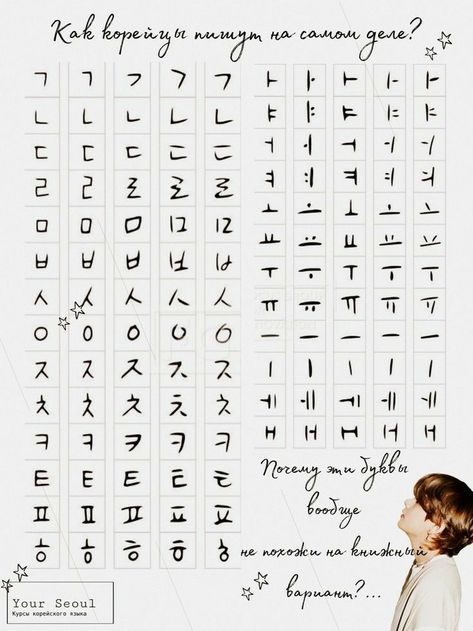 Как корейцы пишут на самом деле?
ㄱ ㄱ ㄱ ㄱ ㄱ
ㄴ ㄴ ㄴ ㄴ ㄴ
ㄷ ㄷ ㄷ ㄷ ㄷ
ㄹ ㄹ ㄹ ㄹ ㄹ
ㅁ ㅁ ㅁ ㅁ ㅁ
ㅂ ㅂ ㅂ ㅂ ㅂ
ㅅ ㅅ ㅅ ㅅ ㅅ
ㅇ ㅇ ㅇ ㅇ ㅇ
ㅈ ㅈ ㅈ ㅈ ㅈ
ㅊ ㅊ ㅊ ㅊ ㅊ
ㅋ ㅋ ㅋ ㅋ ㅋ
ㅌ ㅌ ㅌ ㅌ ㅌ
ㅍ ㅍ ㅍ ㅍ ㅍ
ㅎ ㅎ ㅎ ㅎ ㅎ
ㅏ ㅏ ㅏ ㅏ ㅏ
ㅑ ㅑ ㅑ ㅑ ㅑ
ㅓ ㅓ ㅓ ㅓ ㅓ
ㅕ ㅕ ㅕ ㅕ ㅕ
ㅗ ㅗ ㅗ ㅗ ㅗ
ㅛ ㅛ ㅛ ㅛ ㅛ
ㅜ ㅜ ㅜ ㅜ ㅜ
ㅠ ㅠ ㅠ ㅠ ㅠ
ㅡ ㅡ ㅡ ㅡ ㅡ
ㅣ ㅣ ㅣ ㅣ ㅣ
ㅔ ㅔ ㅔ ㅔ ㅔ
ㅐ ㅐ ㅐ ㅐ ㅐ
Почему эти буквы
вообще
не похожи на книжный
вариант?...
Your Seoul
Курсы корейского языка